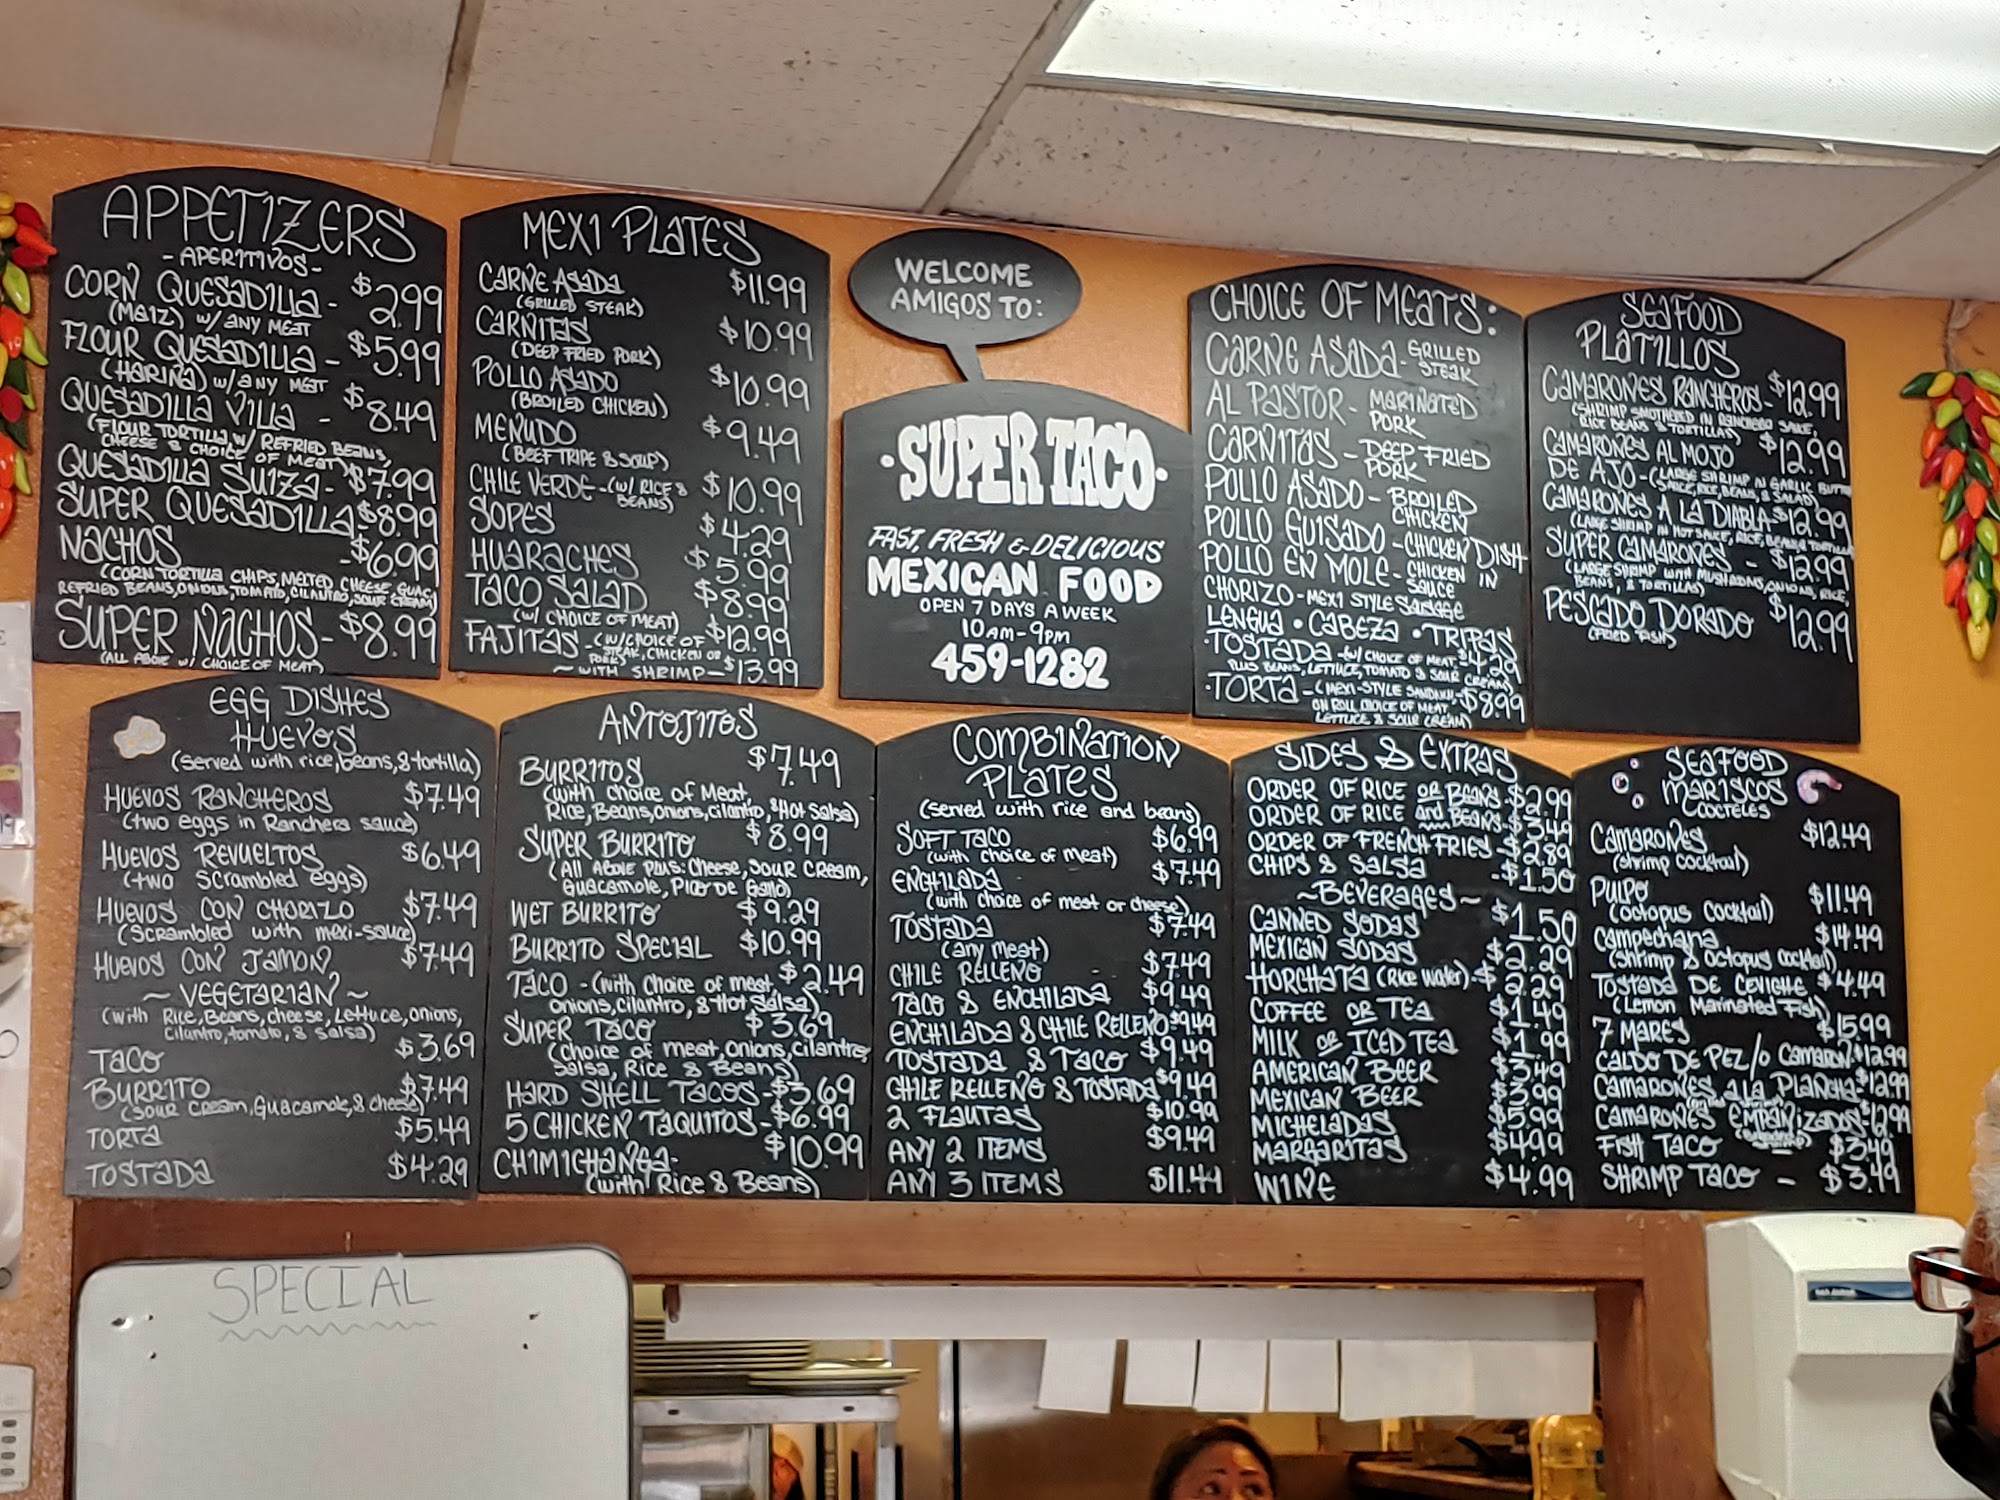 APPETIZERS
- APERITIVOS -
CORN QUESADILLA - $2.99
(MAIZ) W/ ANY MEAT
FLOUR QUESADILLA - $5.99
(HARINA) W/ ANY MEAT
QUESADILLA VILLA - $8.49
(FLOUR TORTILLA W/ REFRIED BEANS,
CHEESE & CHOICE OF MEAT)
QUESADILLA SUIZA - $7.99
SUPER QUESADILLA - $8.99
NACHOS - $6.99
(CORN TORTILLA CHIPS, MELTED CHEESE, GUAC,
REFRIED BEANS, ONIONS, TOMATO, CILANTRO, SOUR CREAM)
SUPER NACHOS - $8.99
(ALL ABOVE W/ CHOICE OF MEAT)
MEXI PLATES
CARNE ASADA $11.99
(GRILLED STEAK)
CARNITAS $10.99
(DEEP FRIED PORK)
POLLO ASADO $10.99
(BROILED CHICKEN)
MENUDO $9.49
(BEEF TRIPE & SOUP)
CHILE VERDE - (W/ RICE & BEANS) $10.99
SOPES $4.29
HUARACHES $5.99
TACO SALAD $8.99
(W/ CHOICE OF MEAT)
FAJITAS - (W/ CHOICE OF $12.99
STEAK, CHICKEN OR
PORK)
~ WITH SHRIMP - $13.99
WELCOME
AMIGOS TO:
• SUPER TACO •
FAST, FRESH & DELICIOUS
MEXICAN FOOD
OPEN 7 DAYS A WEEK
10 AM - 9 PM
459-1282
CHOICE OF MEATS:
CARNE ASADA - GRILLED
STEAK
AL PASTOR - MARINATED
PORK
CARNITAS - DEEP FRIED
PORK
POLLO ASADO - BROILED
CHICKEN
POLLO GUISADO - CHICKEN DISH
POLLO EN MOLE - CHICKEN IN
SAUCE
CHORIZO - MEXI STYLE SAUSAGE
LENGUA • CABEZA • TRIPAS
• TOSTADA - (W/ CHOICE OF MEAT $4.29
PLUS BEANS, LETTUCE, TOMATO & SOUR CREAM)
• TORTA - (MEXI-STYLE SANDWICH - $8.99
ON ROLL CHOICE OF MEAT,
LETTUCE & SOUR CREAM)
SEAFOOD
PLATILLOS
CAMARONES RANCHEROS - $12.99
(SHRIMP SMOTHERED IN RANCHERO SAUCE,
RICE BEANS & TORTILLAS)
CAMARONES AL MOJO $12.99
DE AJO - (LARGE SHRIMP IN GARLIC BUTTER
SAUCE, RICE, BEANS, & SALAD)
CAMARONES A LA DIABLA - $12.99
(LARGE SHRIMP IN HOT SAUCE, RICE, BEANS & TORTILLAS)
SUPER CAMARONES - $12.99
(LARGE SHRIMP WITH MUSHROOMS, ONIONS, RICE,
BEANS, & TORTILLAS)
PESCADO DORADO $12.99
(FRIED FISH)
EGG DISHES
HUEVOS
(served with rice, beans, & tortilla)
HUEVOS RANCHEROS $7.49
(two eggs in Ranchera sauce)
HUEVOS REVUELTOS $6.49
(two scrambled eggs)
HUEVOS CON CHORIZO $7.49
(scrambled with mexi-sauce)
HUEVOS CON JAMON $7.49
~ VEGETARIAN ~
(with Rice, Beans, cheese, Lettuce, onions,
cilantro, tomato, & salsa)
TACO $3.69
BURRITO $7.49
(sour cream, Guacamole, & cheese)
TORTA $5.49
TOSTADA $4.29
ANTOJITOS
BURRITOS $7.49
(with choice of Meat,
Rice, Beans, onions, cilantro, & Hot Salsa)
SUPER BURRITO $8.99
(All Above Plus: Cheese, Sour Cream,
Guacamole, Pico De Gallo)
WET BURRITO $9.29
BURRITO SPECIAL $10.99
TACO - (with choice of meat, $2.49
onions, cilantro, & Hot Salsa)
SUPER TACO $3.69
(Choice of meat, onions, cilantro,
Salsa, Rice & Beans)
HARD SHELL TACOS - $3.69
5 CHICKEN TAQUITOS - $6.99
CHIMICHANGA - $10.99
(with Rice & Beans)
COMBINATION
PLATES
(served with rice and beans)
SOFT TACO $6.99
(with choice of meat)
ENCHILADA $7.49
(with choice of meat or cheese)
TOSTADA $7.49
(any meat)
CHILE RELLENO $7.49
TACO & ENCHILADA $9.49
ENCHILADA & CHILE RELLENO $9.49
TOSTADA & TACO $9.49
CHILE RELLENO & TOSTADA $9.49
2 FLAUTAS $10.99
ANY 2 ITEMS $9.49
ANY 3 ITEMS $11.49
SIDES & EXTRAS
ORDER OF RICE OR BEANS - $2.99
ORDER OF RICE and BEANS - $3.49
ORDER OF FRENCH FRIES - $2.89
CHIPS & SALSA - $1.50
~ BEVERAGES ~
CANNED SODAS $1.50
MEXICAN SODAS $2.29
HORCHATA (Rice Water) - $2.29
COFFEE OR TEA $1.49
MILK OR ICED TEA $1.99
AMERICAN BEER $3.49
MEXICAN BEER $3.99
MICHELADAS $5.99
MARGARITAS $4.99
WINE $4.99
SEAFOOD
MARISCOS
COCTELES
CAMARONES $12.49
(shrimp cocktail)
PULPO $11.49
(octopus cocktail)
Campechana $14.49
(shrimp & octopus cocktail)
TOSTADA DE CEVICHE $4.49
(Lemon Marinated Fish)
7 MARES $15.99
CALDO DE PEZ/O CAMARON $12.99
CAMARONES A LA PLANCHA $12.99
CAMARONES EMPANIZADOS - 12.99
FISH TACO $3.49
SHRIMP TACO - $3.49
SPECIAL